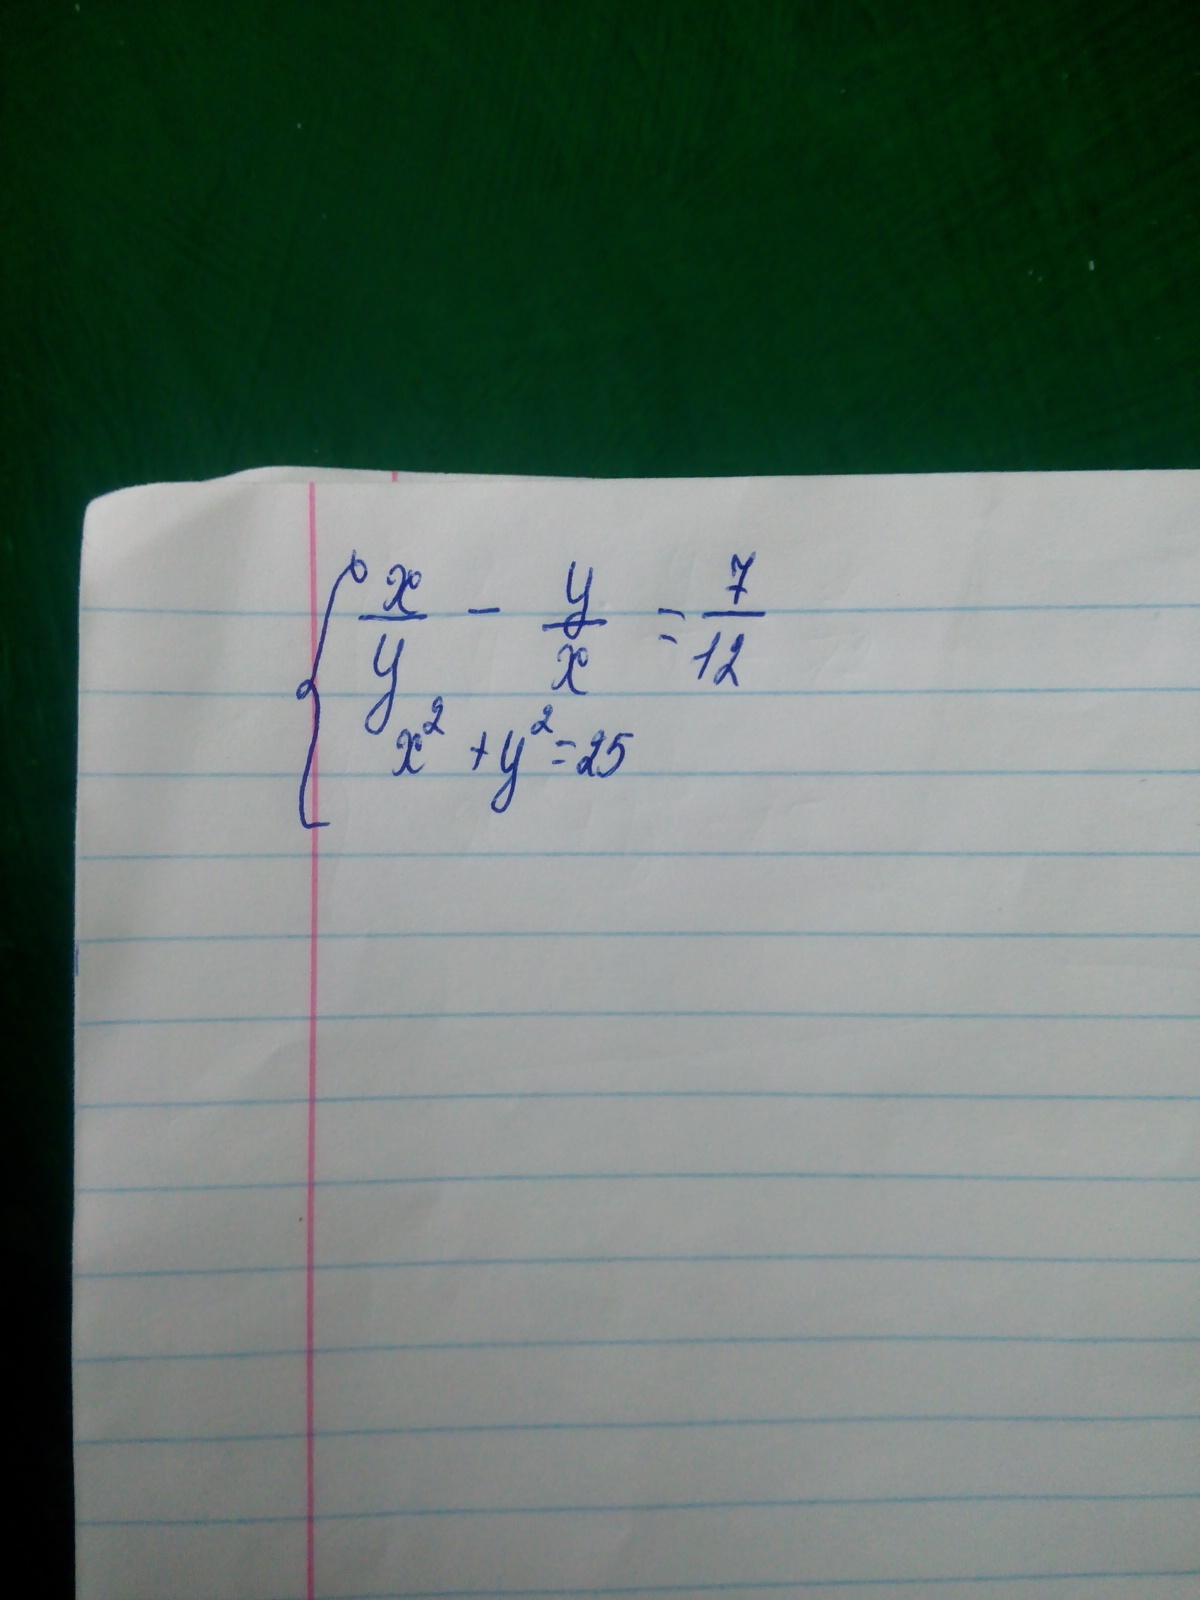 x/y - y/x = 7/12
x² + y² = 25